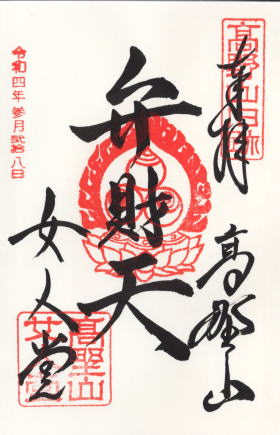 奉拝
高野山
弁財天
女人堂
高野山
女人堂
令和四年 参月弐拾八日